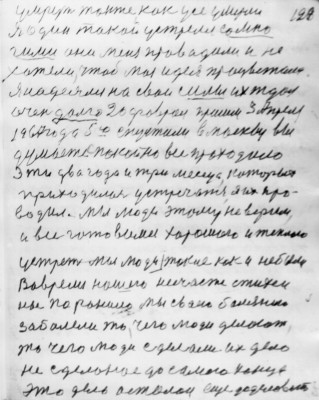 умрет также как усе умерли 122
Я один такой устрелся со мно
гими они меня провадили и не
хотели, чтоб моя идея процветала
Я надеялся на свои силы их ждал
очен долго 20 февраля прошли 3 апреля
5го спустили в Москву вы
думаете спокойно все проходило
Эти два года и три месяца, которых
приходилося устречатся я их про-
водил. Мы люди этому не верим,
а все готовыеми хорошого и теплого
устрет мы люди такие как и не были
Вовремя нашего несчастя стихий
ные по рании мы сваво болезнию
заболели то, чего люди делают,
то чего люди сделали их дело
не сделаное до самого конца
Это дело осталося еще доделоват